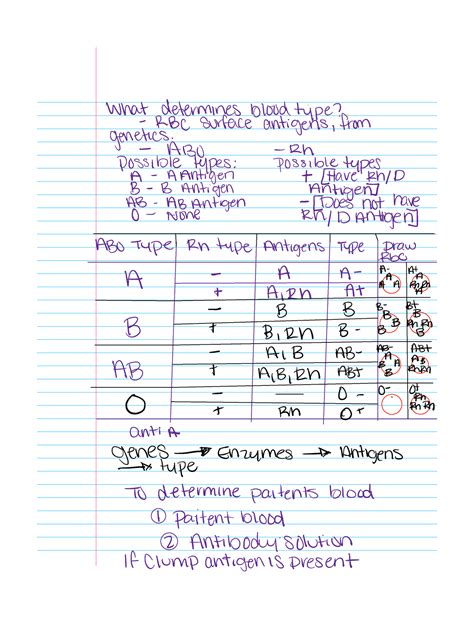 What determines blood type?
- RBC surface antigens, from
genetics.
- ABO - Rh
Possible types: Possible types
A - A Antigen + [Have Rh/D
B - B Antigen Antigen]
AB - AB Antigen - [Does not have
O - None Rh/D Antigen]
ABO Type Rh type Antigens Type Draw Rbc
A - A A- A- A+
+ A,Rh A+
B - B B B- B+
+ B,Rh B-
AB - A,B AB- AB- AB+
+ A,B,Rh AB+
O - — O- O- O+
+ Rh O+
anti A
genes → Enzymes → Antigens
→ type
To determine paitents blood
① Paitent blood
② Antibody solution
If Clump antigen is present